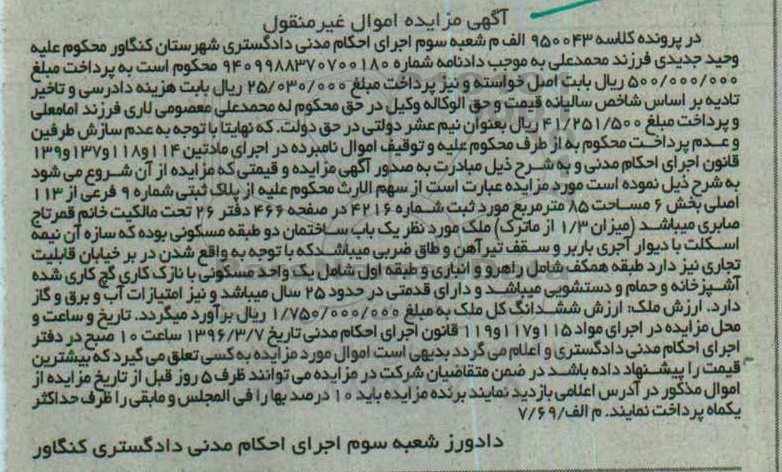 آگهی مزایده اموال غیرمنقول
در پرونده کلاسه ۹۵۰۰۴۳ الف م شعبه سوم اجرای احکام مدنی دادگستری شهرستان کنگاور محکوم علیه
وحید جدیدی فرزند محمدعلی به موجب دادنامه شماره ۹۴۰۹۹۸۸۳۷۰۷۰۰۱۸۰ محکوم است به پرداخت مبلغ
۵۰۰/۰۰۰/۰۰۰ ریال بابت اصل خواسته و نیز پرداخت مبلغ ۲۵/۰۳۰/۰۰۰ ریال بابت هزینه دادرسی و تاخیر
تادیه بر اساس شاخص سالیانه قیمت و حق الوکاله وکیل در حق محکوم له محمدعلی معصومی لاری فرزند امامعلی
و پرداخت مبلغ ۴۱/۲۵۱/۵۰۰ ریال بعنوان نیم عشر دولتی در حق دولت. که نهایتا با توجه به عدم سازش طرفین
و عدم پرداخت محکوم به از طرف محکوم علیه و توقیف اموال نامبرده در اجرای مادتین ۱۱۴و۱۱۸و۱۳۷و۱۳۹
قانون اجرای احکام مدنی و به شرح ذیل مبادرت به صدور آگهی مزایده و قیمتی که مزایده از آن شروع می شود
به شرح ذیل نموده است مورد مزایده عبارت است از سهم الارث محکوم علیه از پلاک ثبتی شماره ۹ فرعی از ۱۱۳
اصلی بخش ۶ مساحت ۸۵ مترمربع مورد ثبت شماره ۴۲۱۶ در صفحه ۴۶۶ دفتر ۲۶ تحت مالکیت خانم قمرتاج
صابری میباشد (میزان ۱/۳ از ماترک) ملک مورد نظر یک باب ساختمان دو طبقه مسکونی بوده که سازه آن نیمه
اسکلت با دیوار آجری باربر و سقف تیرآهن و طاق ضربی میباشدکه با توجه به واقع شدن در بر خیابان قابلیت
تجاری نیز دارد طبقه همکف شامل راهرو و انباری و طبقه اول شامل یک واحد مسکونی با نازک کاری گچ کاری شده
آشپزخانه و حمام و دستشویی میباشد و دارای قدمتی در حدود ۲۵ سال میباشد و نیز امتیازات آب و برق و گاز
دارد. ارزش ملک: ارزش ششدانگ کل ملک به مبلغ ۱/۷۵۰/۰۰۰/۰۰۰ ریال برآورد میگردد. تاریخ و ساعت و
محل مزایده در اجرای مواد ۱۱۵و۱۱۷و۱۱۹ قانون اجرای احکام مدنی تاریخ ۱۳۹۶/۳/۷ ساعت ۱۰ صبح در دفتر
اجرای احکام مدنی دادگستری و اعلام می گردد بدیهی است اموال مورد مزایده به کسی تعلق می گیرد که بیشترین
قیمت را پیشنهاد داده باشد در ضمن متقاضیان شرکت در مزایده می توانند ظرف ۵ روز قبل از تاریخ مزایده از
اموال مذکور در آدرس اعلامی بازدید نمایند برنده مزایده باید ۱۰ درصد بها را فی المجلس و مابقی را ظرف حداکثر
یکماه پرداخت نمایند. م الف/۷/۶۹
دادورز شعبه سوم اجرای احکام مدنی دادگستری کنگاور